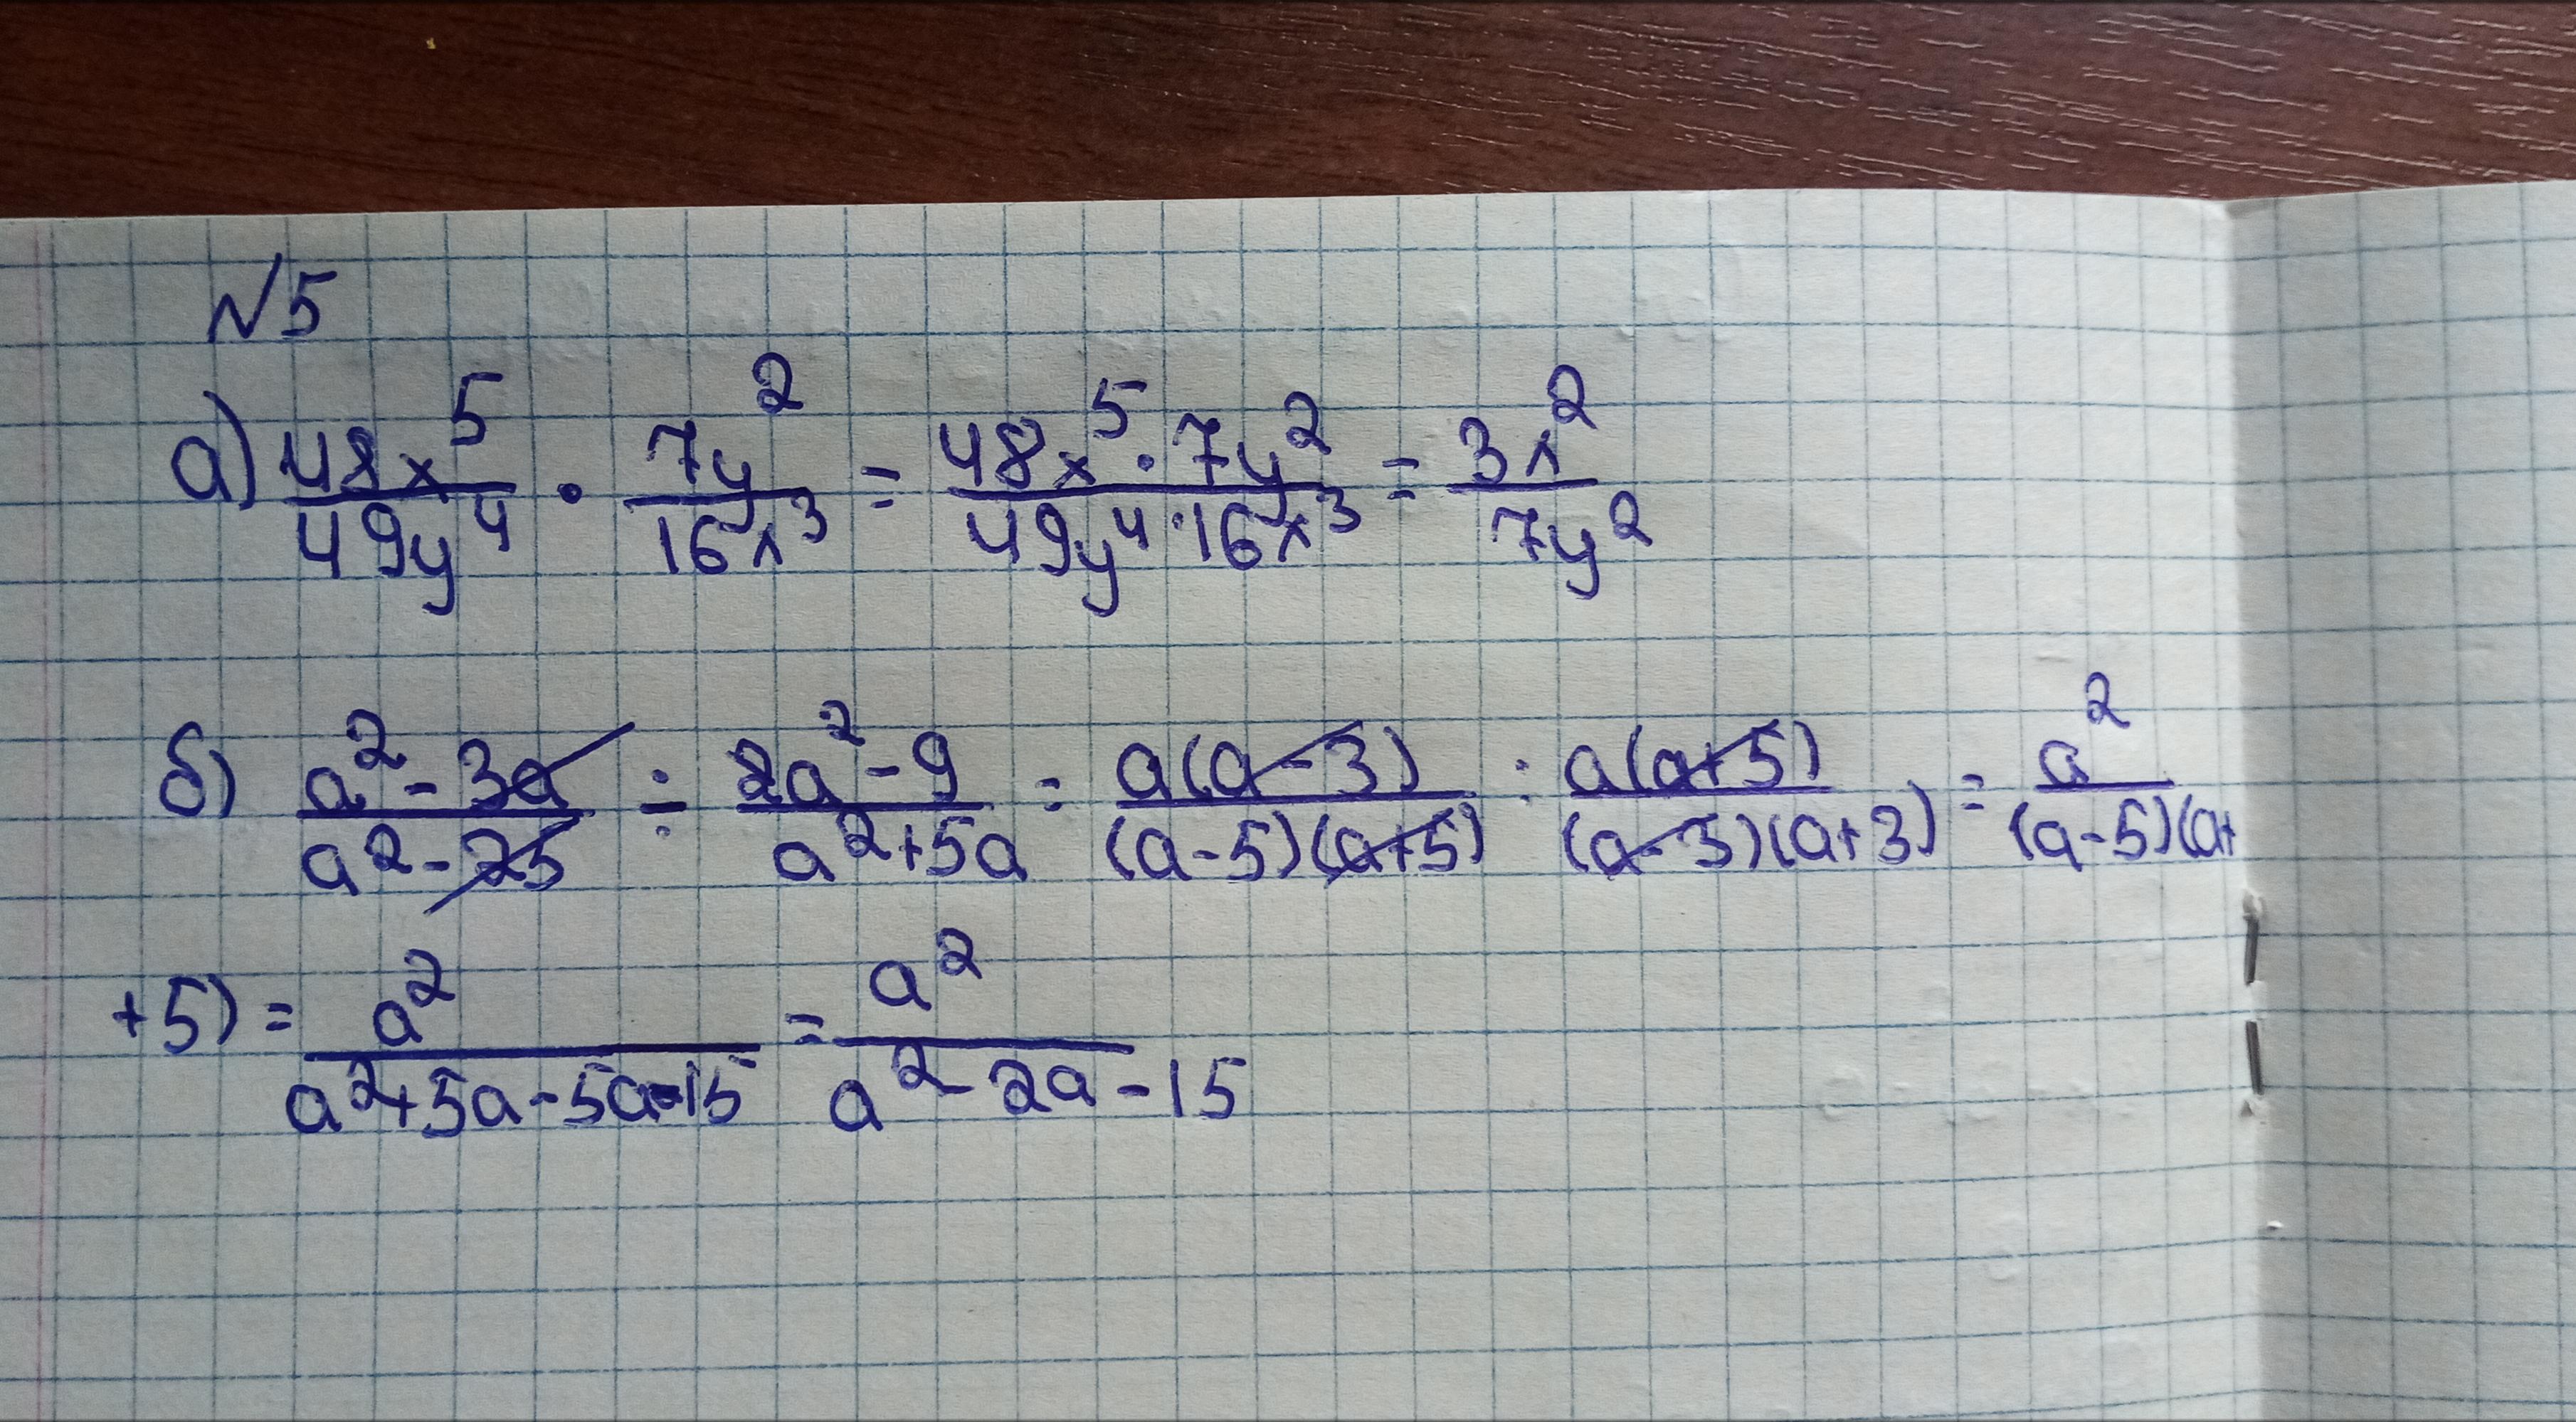 №5
а) 48x⁵/49y⁴ · 7y²/16x³ = 48x⁵·7y²/49y⁴·16x³ = 3x²/7y²
б) a²-3a/a²-25 ÷ 2a²-9/a²+5a = a(a-3)/(a-5)(a+5) : a(a+5)/(a-3)(a+3) = a²/(a-5)(a+
+5) = a²/a²+5a-5a-15 = a²/a²-2a-15